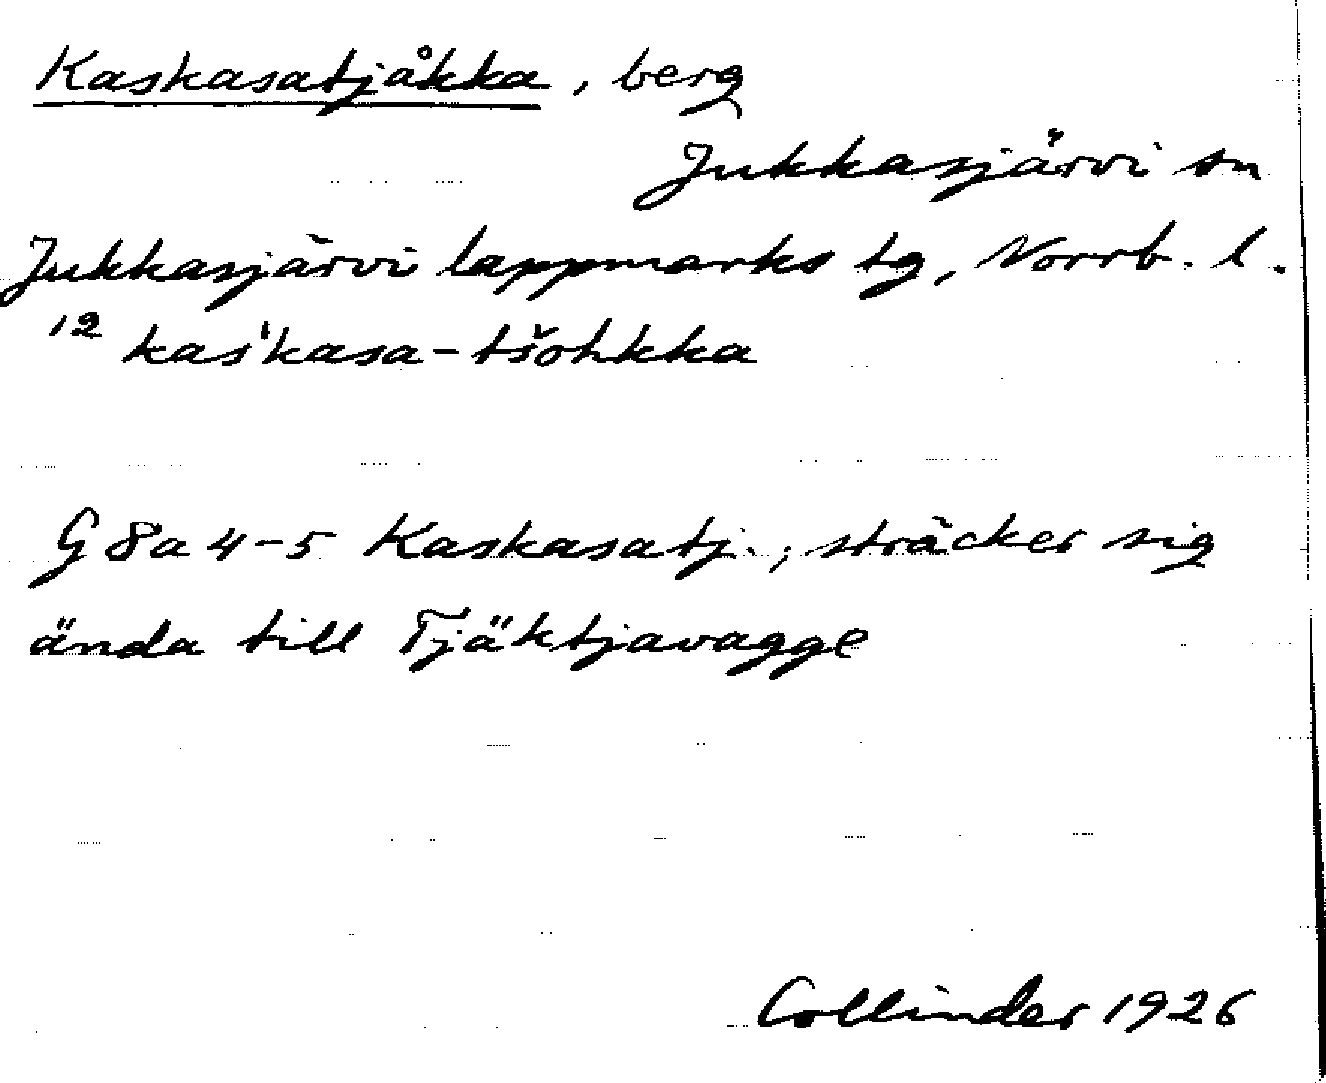 Kaskasatjåkka, berg
Jukkasjärvi sn
Jukkasjärvi lappmarks tg, Norrb. l.
12 kas'kasa-tšohkka
G 8a 4-5 Kaskasatj., sträcker sig
ända till Tjäktjavagge
Collinder 1926